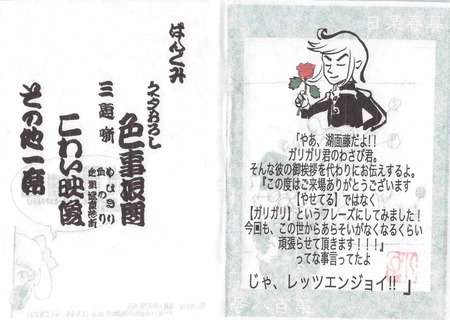 「やあ、湖面藤だよ!!
ガリガリ君のわさび君。
そんな彼の御挨拶を代わりにお伝えするよ。
『この度はご来場ありがとうございます
【やせてる】ではなく
【ガリガリ】というフレーズにしてみました!
今回も、この世からあらそいがなくなるくらい
頑張らせて頂きます!!!』
ってな事言ってたよ
じゃ、レッツエンジョイ!! 」
ばんぐみ
ネタおろし
色事根問
三題噺
こわい映像
その他一席